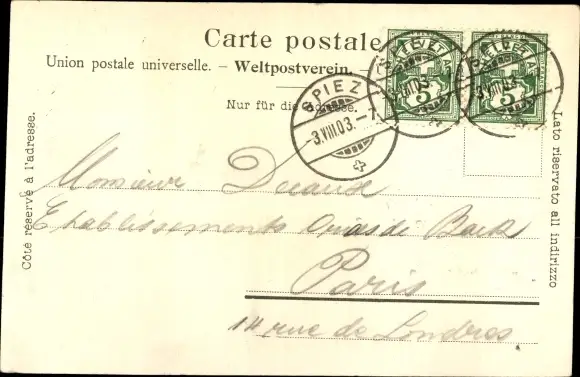 Carte postale
Union postale universelle. – Weltpostverein.
Nur für die Adresse.
SPIEZ
3.VIII.03.–7
HELVETIA
5
HELVETIA
5
Côté réservé à l'adresse.
Lato riservato all indirizzo
Monsieur
Etablissements
Paris
14 rue de Londres